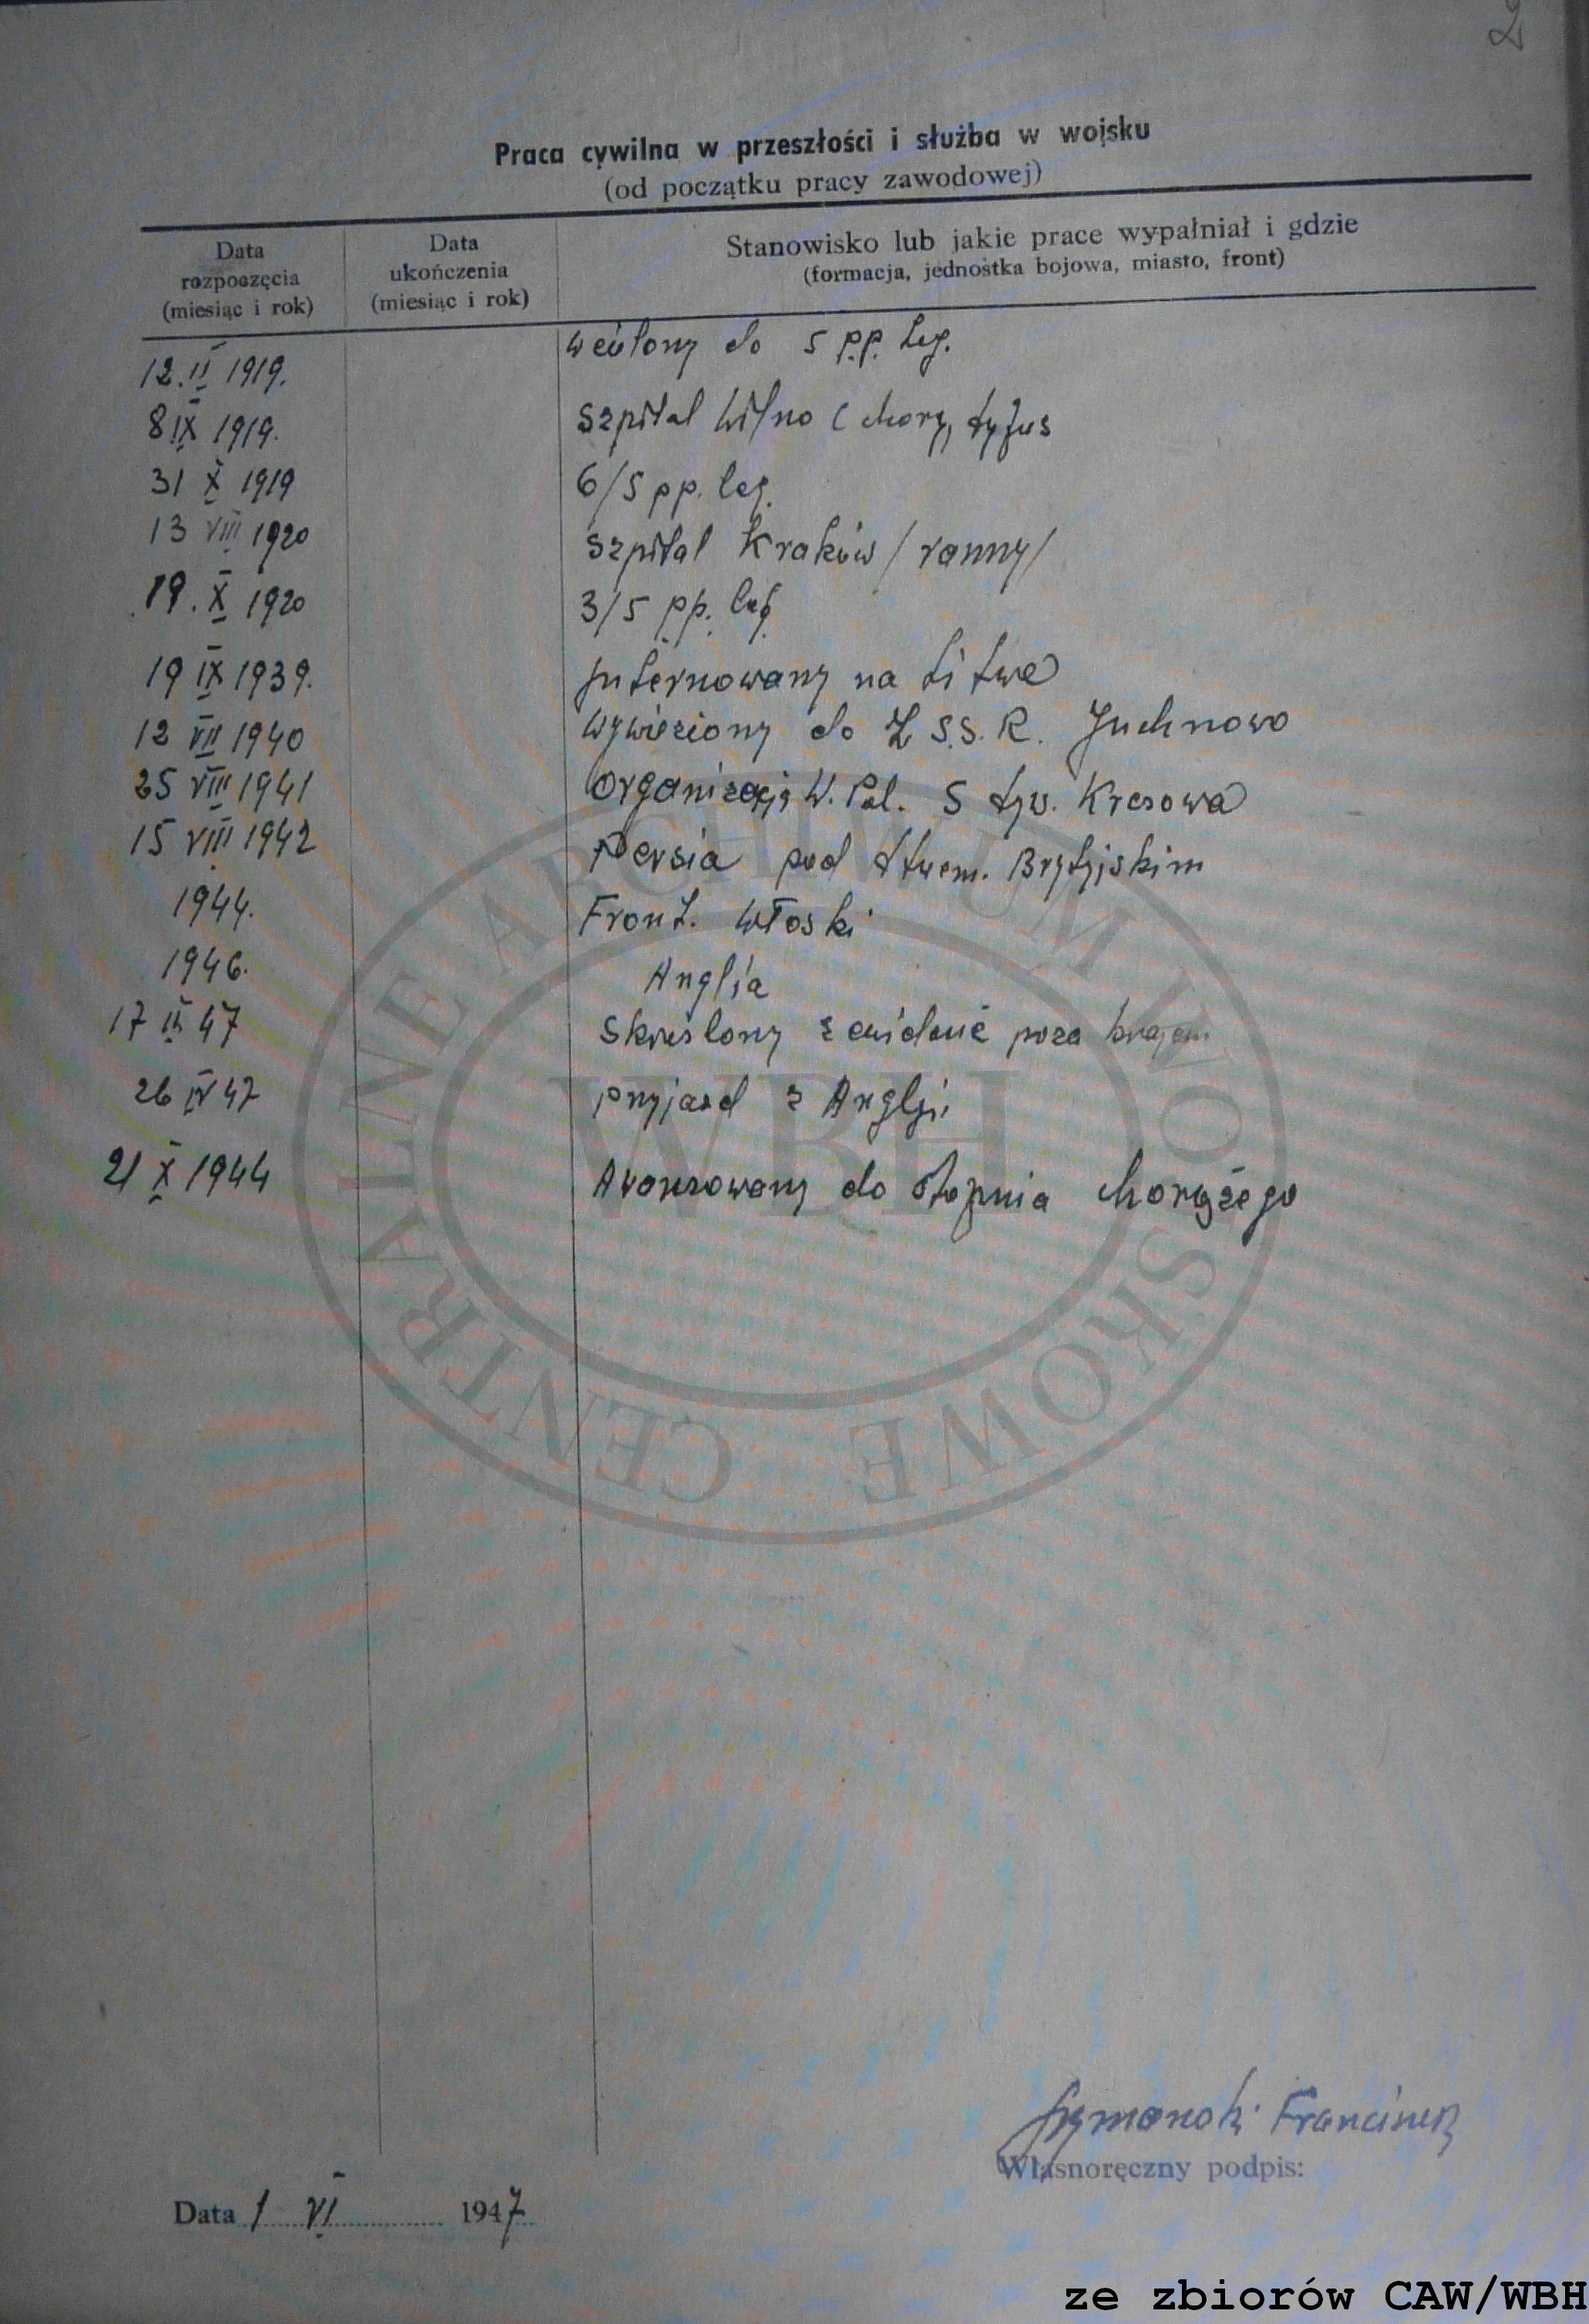 2
Praca cywilna w przeszłości i służba w wojsku
(od początku pracy zawodowej)
Data rozpoczęcia (miesiąc i rok)
Data ukończenia (miesiąc i rok)
Stanowisko lub jakie prace wypałniał i gdzie
(formacja, jednostka bojowa, miasto, front)
12.II 1919. wcielony do 5 p.p. Leg.
8 IX 1919. Szpital Wilno ( chory, tyfus
31 X 1919 6/5 pp. leg.
13 VIII 1920 Szpital Kraków /ranny/
19. X 1920 3/5 pp. leg
19 IX 1939. Internowany na Litwe
12 VII 1940 Wywieziony do Z S.S. R. Juchnowo
25 VIII 1941 Organizacja W. Pol. 5 dyw. Kresowa
15 VIII 1942 Persia pod Brytyjskim
1944. Front. Włoski
1946. Anglia
17 47 Skreślony poza krajem
26 IV 47 przyjazd z Anglji
21 X 1944 Avansowany do stopnia chorążego
Szymanski Franciszek
Własnoręczny podpis:
Data 1 VI 1947
CENTRALNE ARCHIWUM WOJSKOWE
WBH
ze zbiorów CAW/WBH